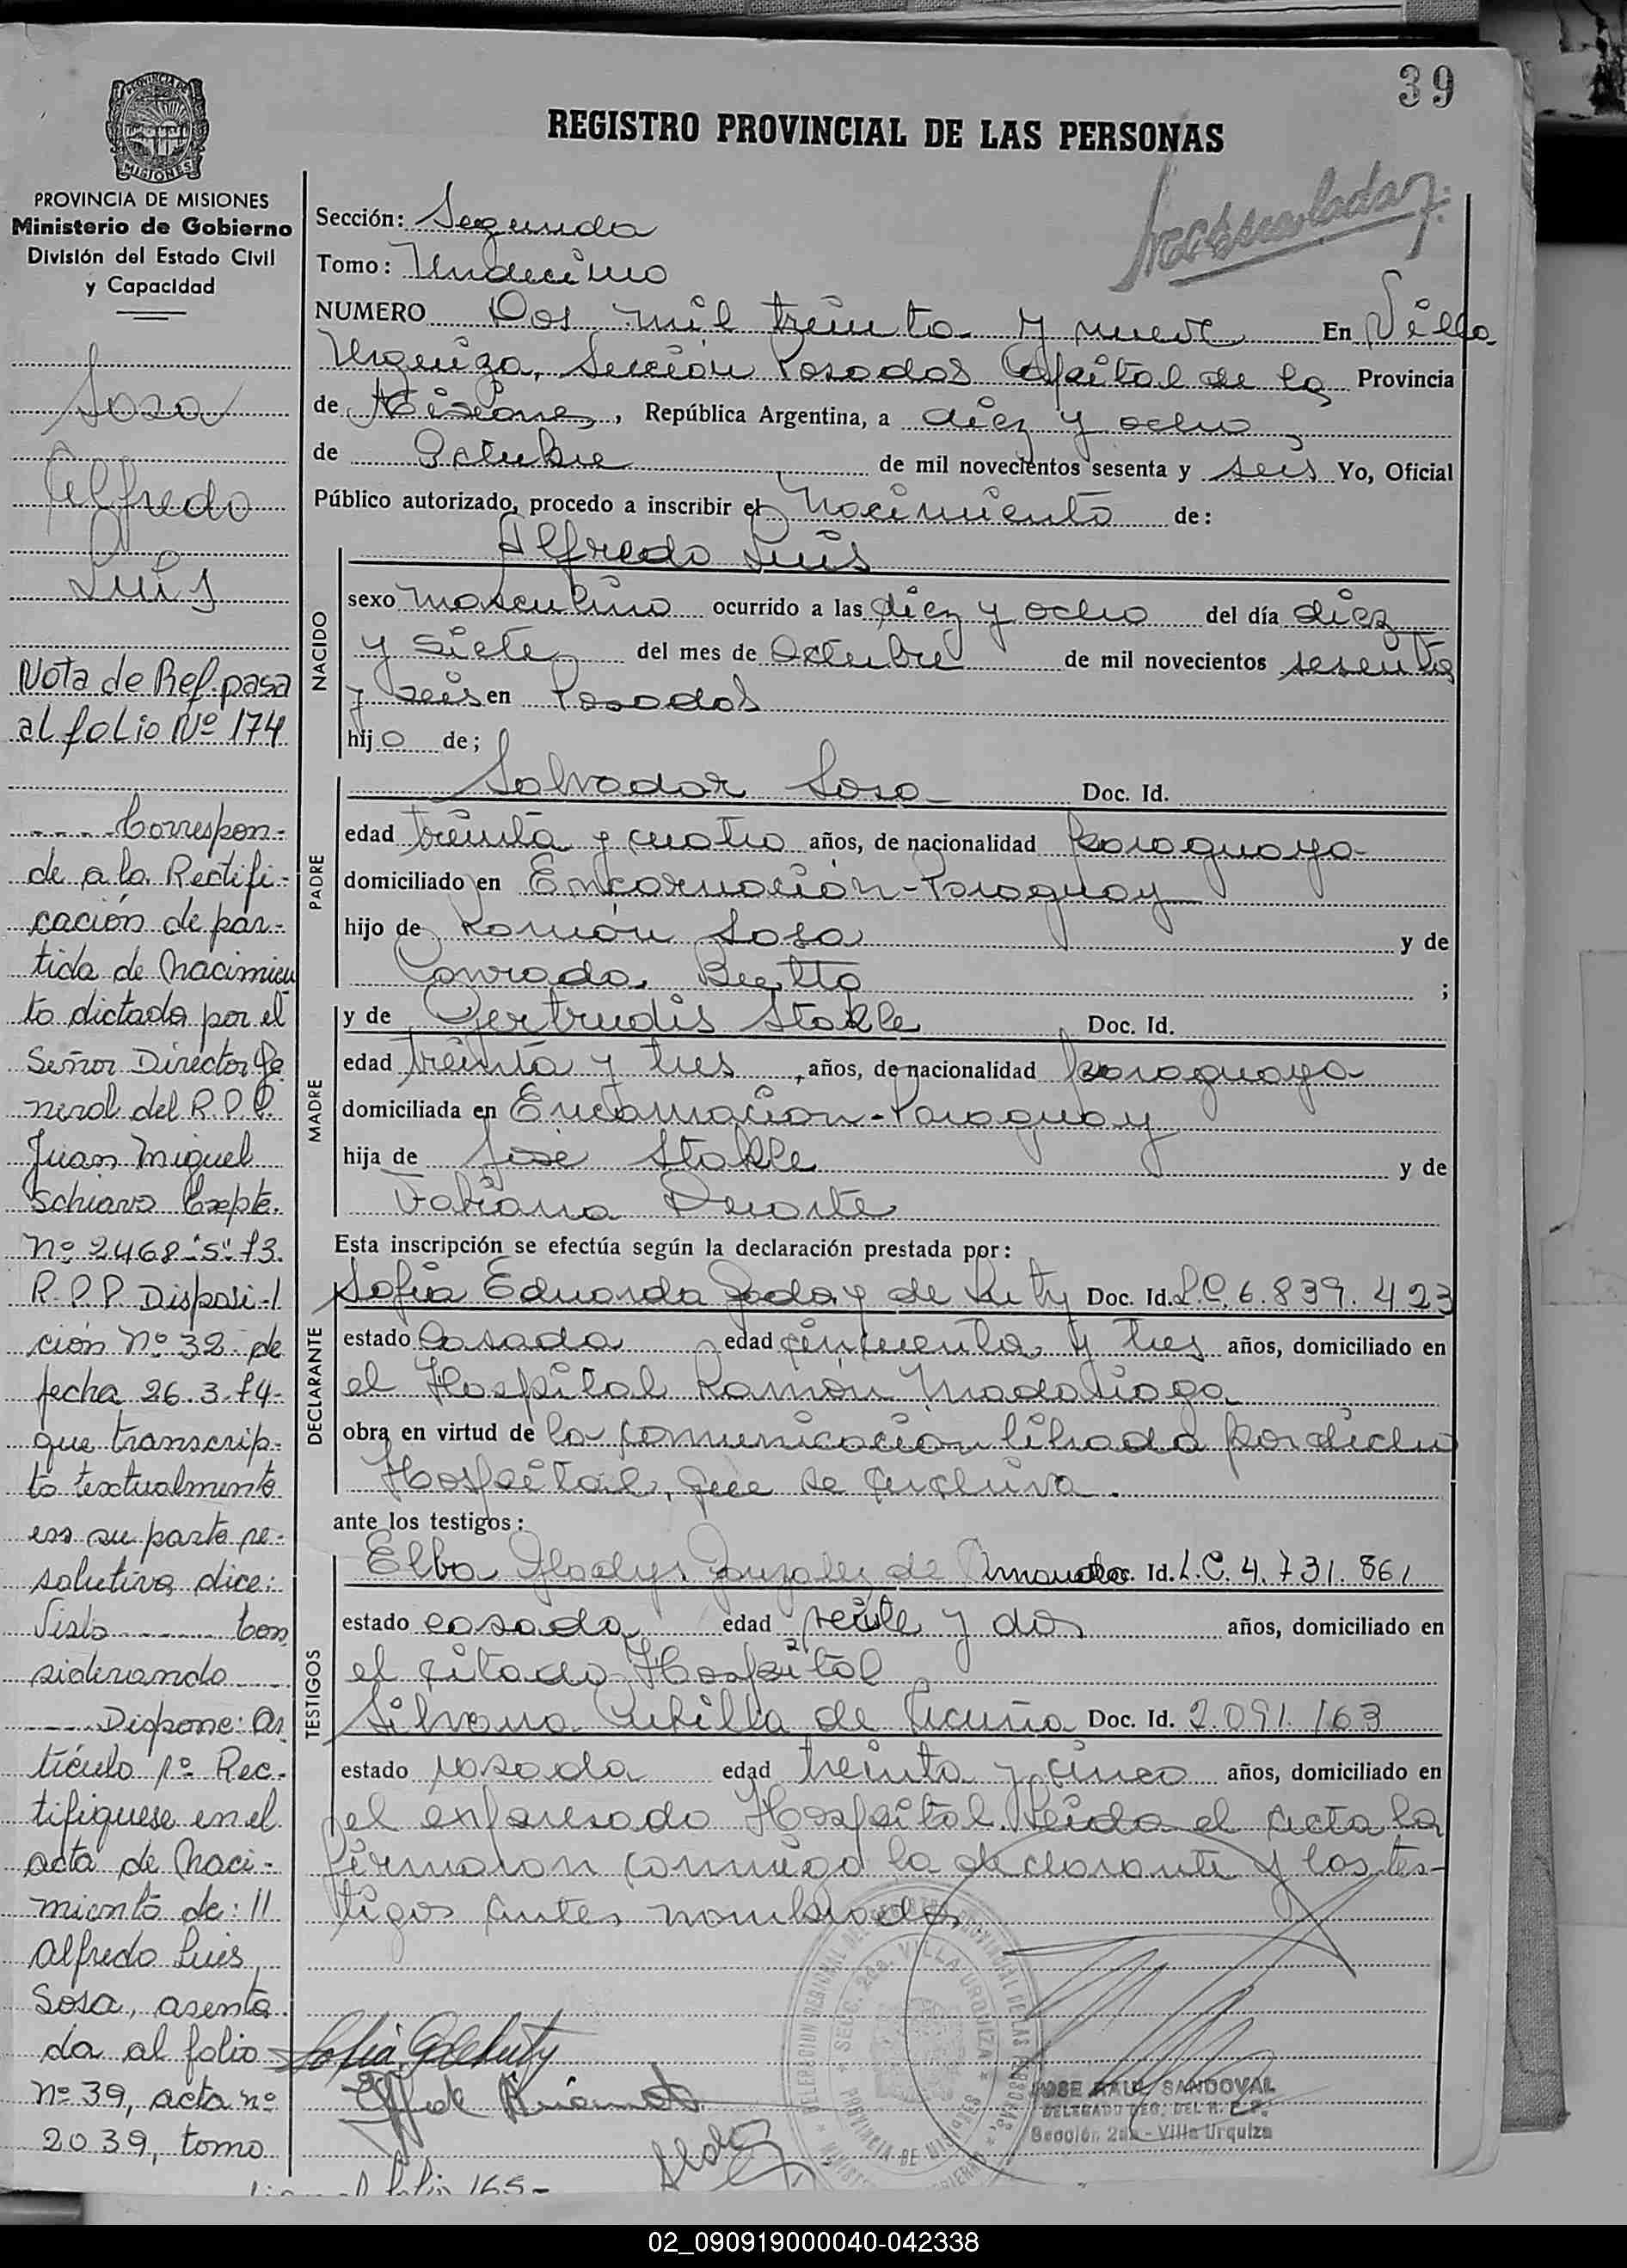 39
REGISTRO PROVINCIAL DE LAS PERSONAS
PROVINCIA DE MISIONES
MISIONES
PROVINCIA DE MISIONES
Ministerio de Gobierno
División del Estado Civil
y Capacidad
Sosa
Alfredo
Luis
Nota de Ref. pasa
al folio Nº 174
---- Correspon-
de a la Rectifi-
cación de par-
tida de Nacimien
to dictada por el
Señor Director Ge
neral del R.P.P.
Juan Miguel
Schiavo Expte.
Nº 2468-"S"-73.
R.P.P. Disposi-
ción Nº 32 de
fecha 26.3.74-
que transcrip-
to textualmente
en su parte re-
solutiva dice:
Visto ------ Con
siderando ----
---- Dispone: Ar
tículo 1º Rec-
tifiquese en el
acta de Naci-
miento de: 11
Alfredo Luis
Sosa, asenta
da al folio
Nº 39, acta nº
2039, tomo
Sección: Segunda
Tomo: Undecimo
NUMERO Dos mil treinta y nueve En Villa
Urquiza, Sección Posadas Capital de la Provincia
de Misiones, República Argentina, a diez y ocho
de Octubre de mil novecientos sesenta y seis Yo, Oficial
Público autorizado, procedo a inscribir el Nacimiento de:
NACIDO
Alfredo Luis
sexo masculino ocurrido a las diez y ocho del día diez
y siete del mes de Octubre de mil novecientos sesenta
y seis en Posadas
hijo de;
PADRE
Salvador Sosa Doc. Id.
edad treinta y cuatro años, de nacionalidad paraguaya
domiciliado en Encarnación-Paraguay
hijo de Ramón Sosa y de
Conrada ;
MADRE
y de Gertrudis Doc. Id.
edad treinta y tres, años, de nacionalidad paraguaya
domiciliada en Encarnacion-Paraguay
hija de José y de
Fabiana Duarte
Esta inscripción se efectúa según la declaración prestada por:
DECLARANTE
Sofia Eduarda Godoy de Doc. Id. L.C. 6.839.423
estado Casada edad cincuenta y tres años, domiciliado en
el Hospital Ramón Madariaga
obra en virtud de la comunicación librada por dicho
Hospital, que se archiva.
ante los testigos:
TESTIGOS
Elba Gladys Gonzalez de Doc. Id. L.C. 4.731.861
estado casada edad veinte y dos años, domiciliado en
el citado Hospital
Silvana de Acuña Doc. Id. 2.091.163
estado casada edad treinta y cinco años, domiciliado en
el expresado Hospital. Leida el acta la
firmaron conmigo la declarante y los tes-
tigos antes nombrados
JOSE RAUL SANDOVAL
DELEGADO REG. DEL R.P.P.
Sección 2da - Villa Urquiza
folio 165-
02_090919000040-042338